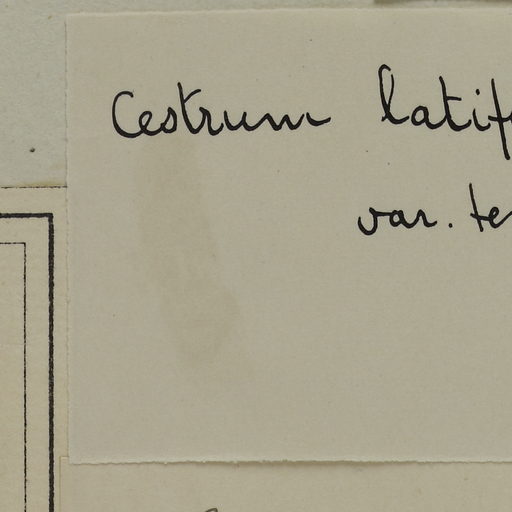 Cestrum latif
var. te